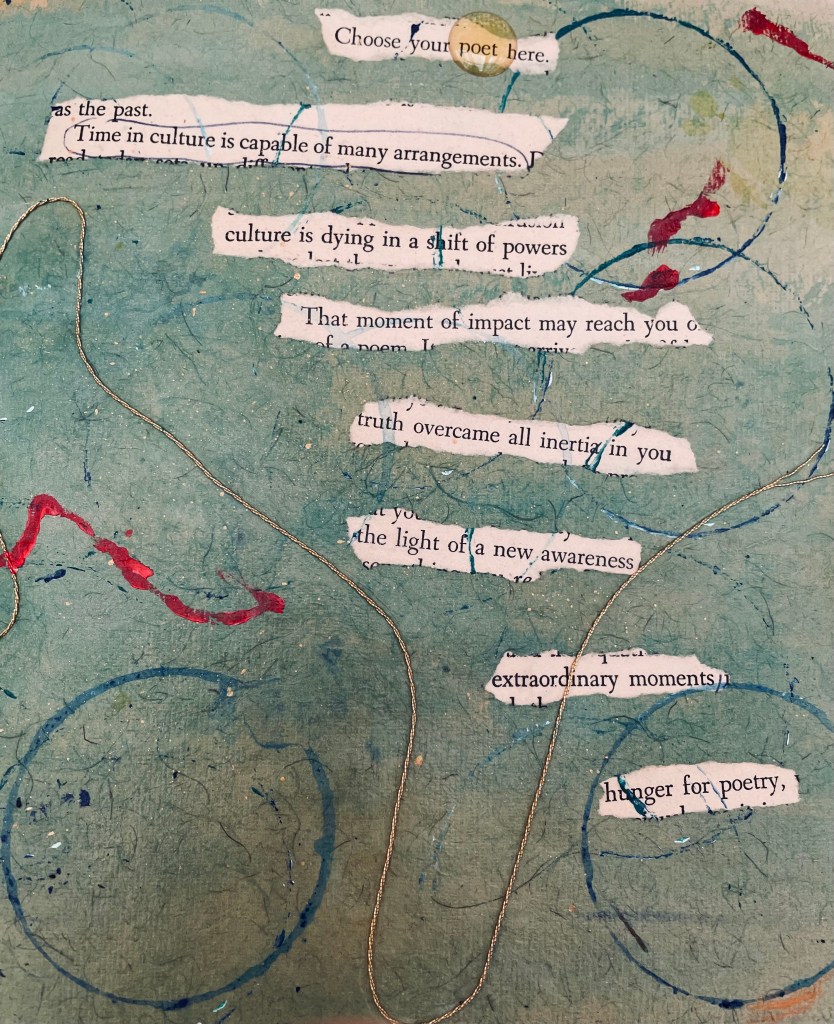 Choose your poet here.
as the past.
Time in culture is capable of many arrangements.
culture is dying in a shift of powers
That moment of impact may reach you
of a poem.
truth overcame all inertia in you
the light of a new awareness
extraordinary moments
hunger for poetry,